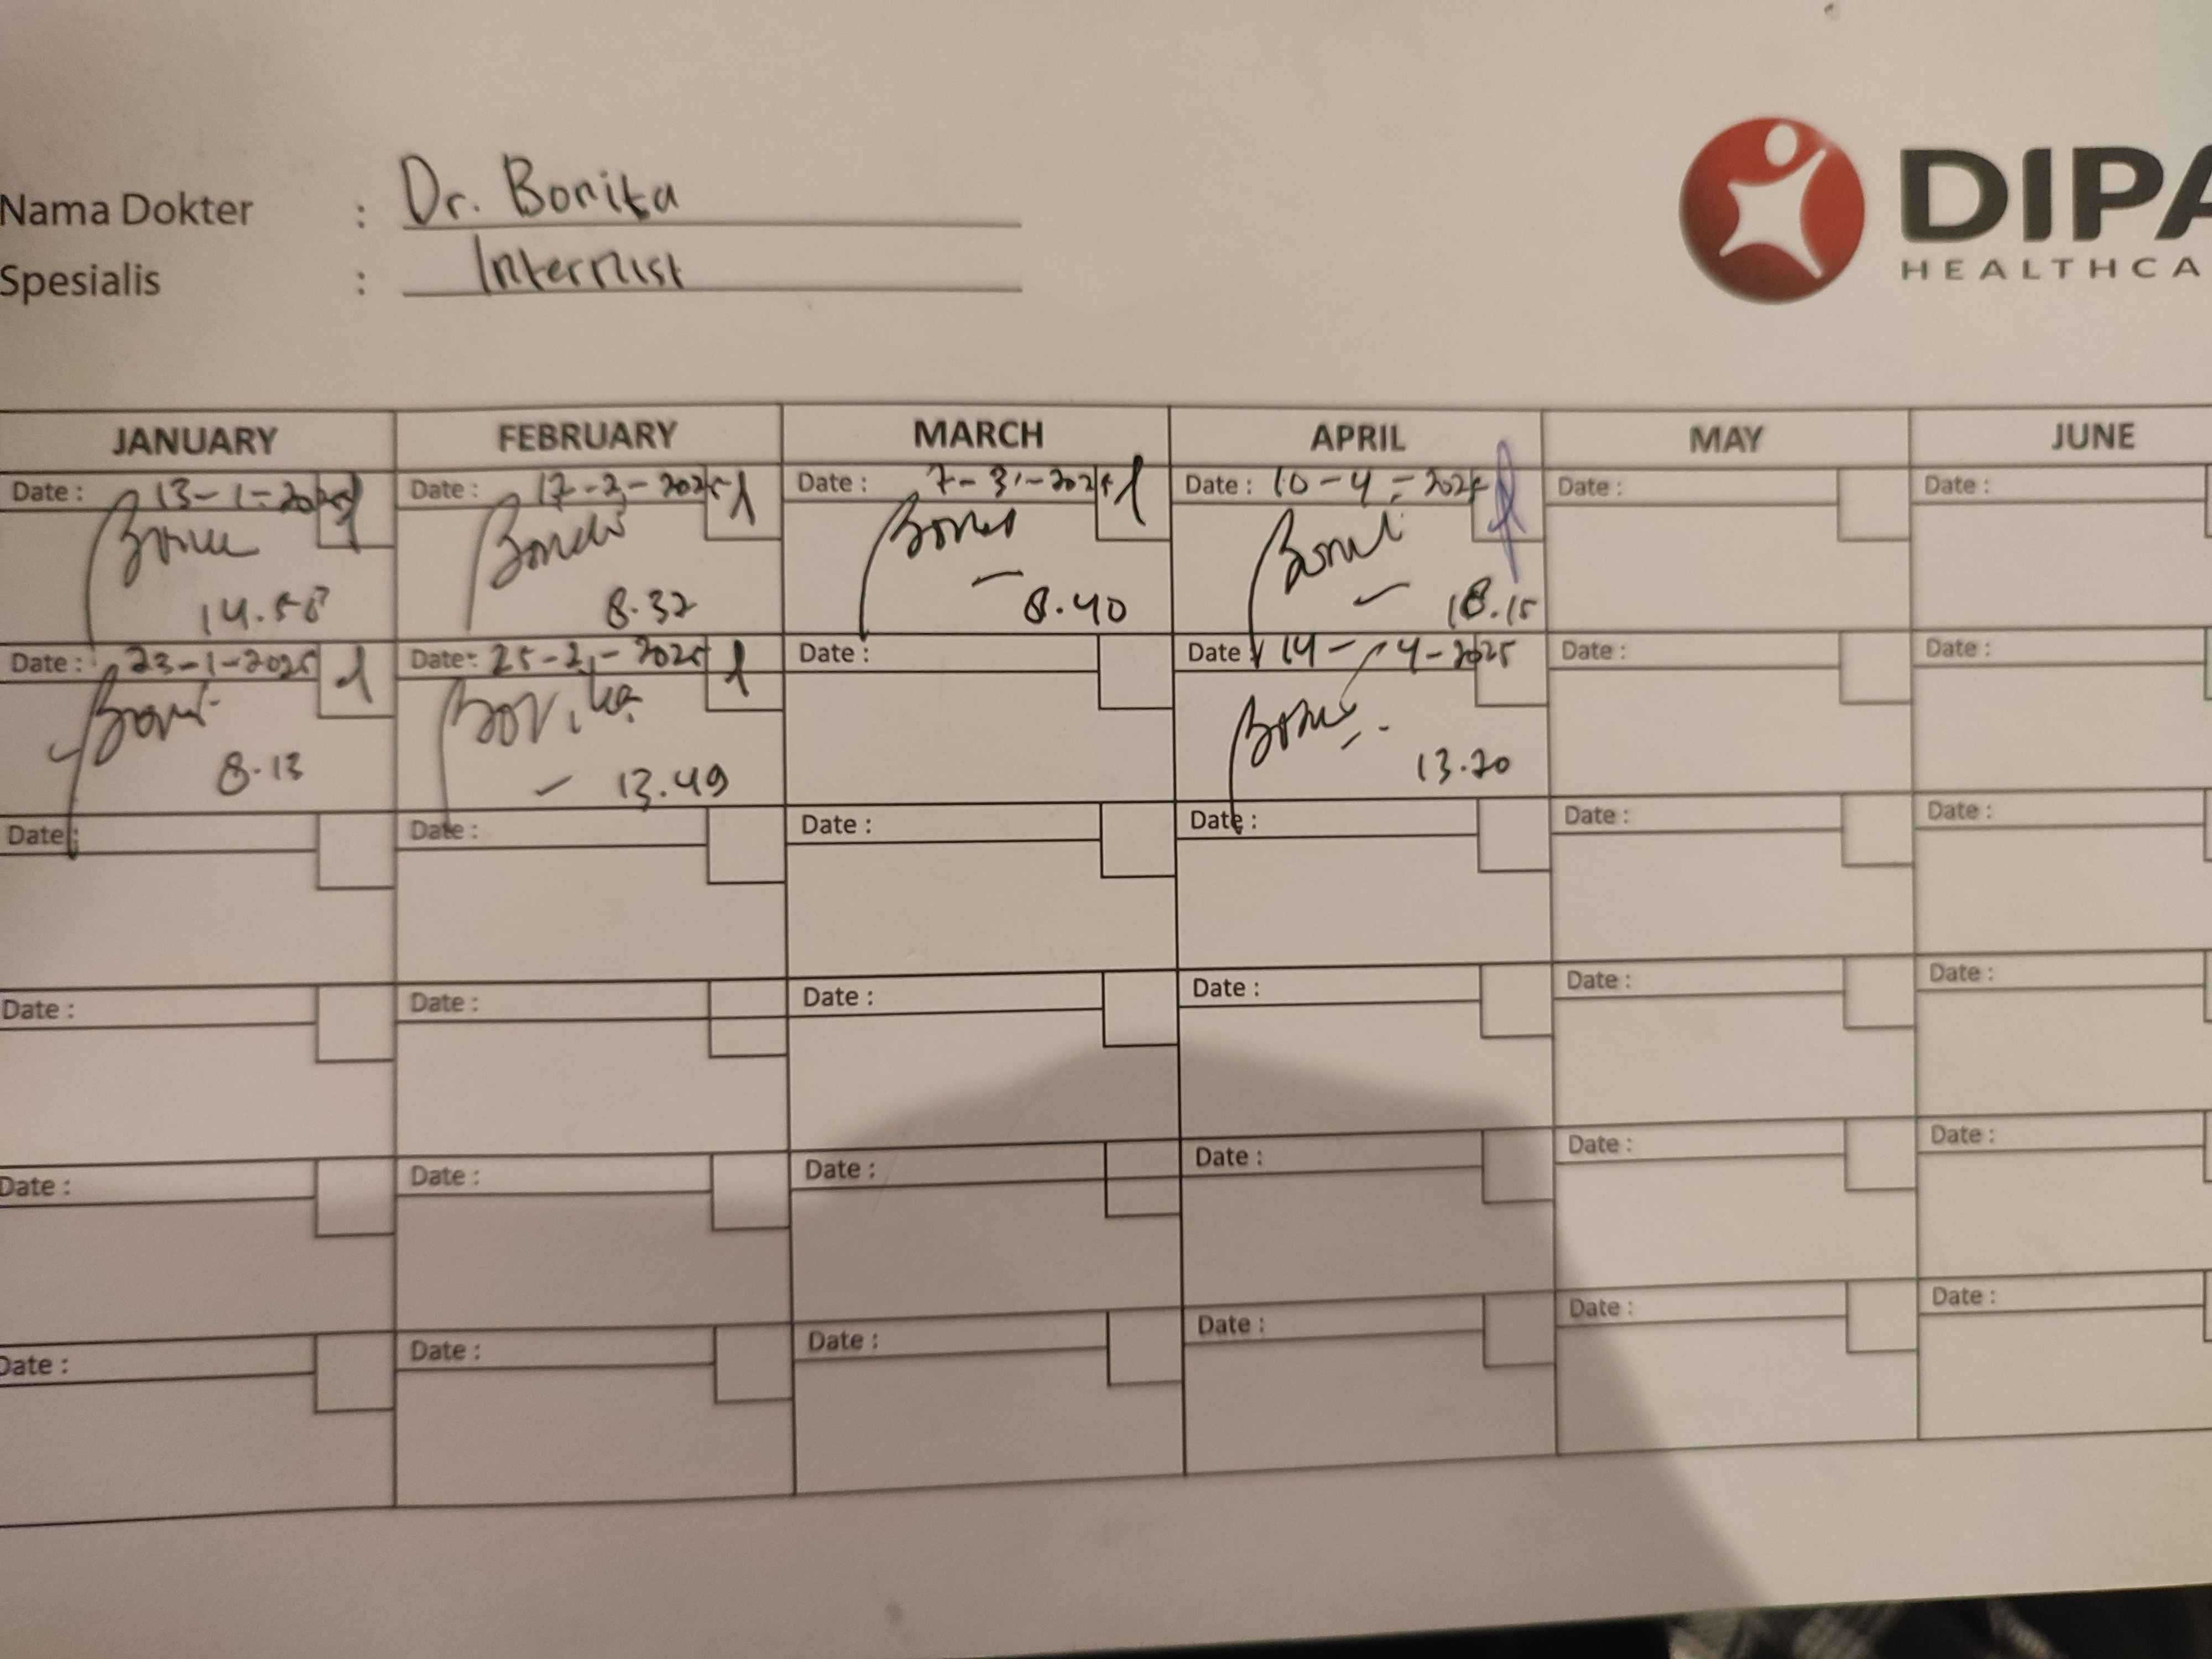 Nama Dokter : Dr. Bonita
Spesialis : Internist
DIPA
HEALTHCA
JANUARY FEBRUARY MARCH APRIL MAY JUNE
Date : 13-1-2025 Date : 17-2-2025 Date : 7-3-2025 Date : 10-4-2025 Date : Date :
14.58 8.32 8.40 18.15
Date : 23-1-2025 Date : 25-2-2025 Date : Date : 14-4-2025 Date : Date :
Bonita
8.13 13.49 13.20
Date : Date : Date : Date : Date : Date :
Date : Date : Date : Date : Date : Date :
Date : Date : Date : Date : Date : Date :
Date : Date : Date : Date : Date : Date :